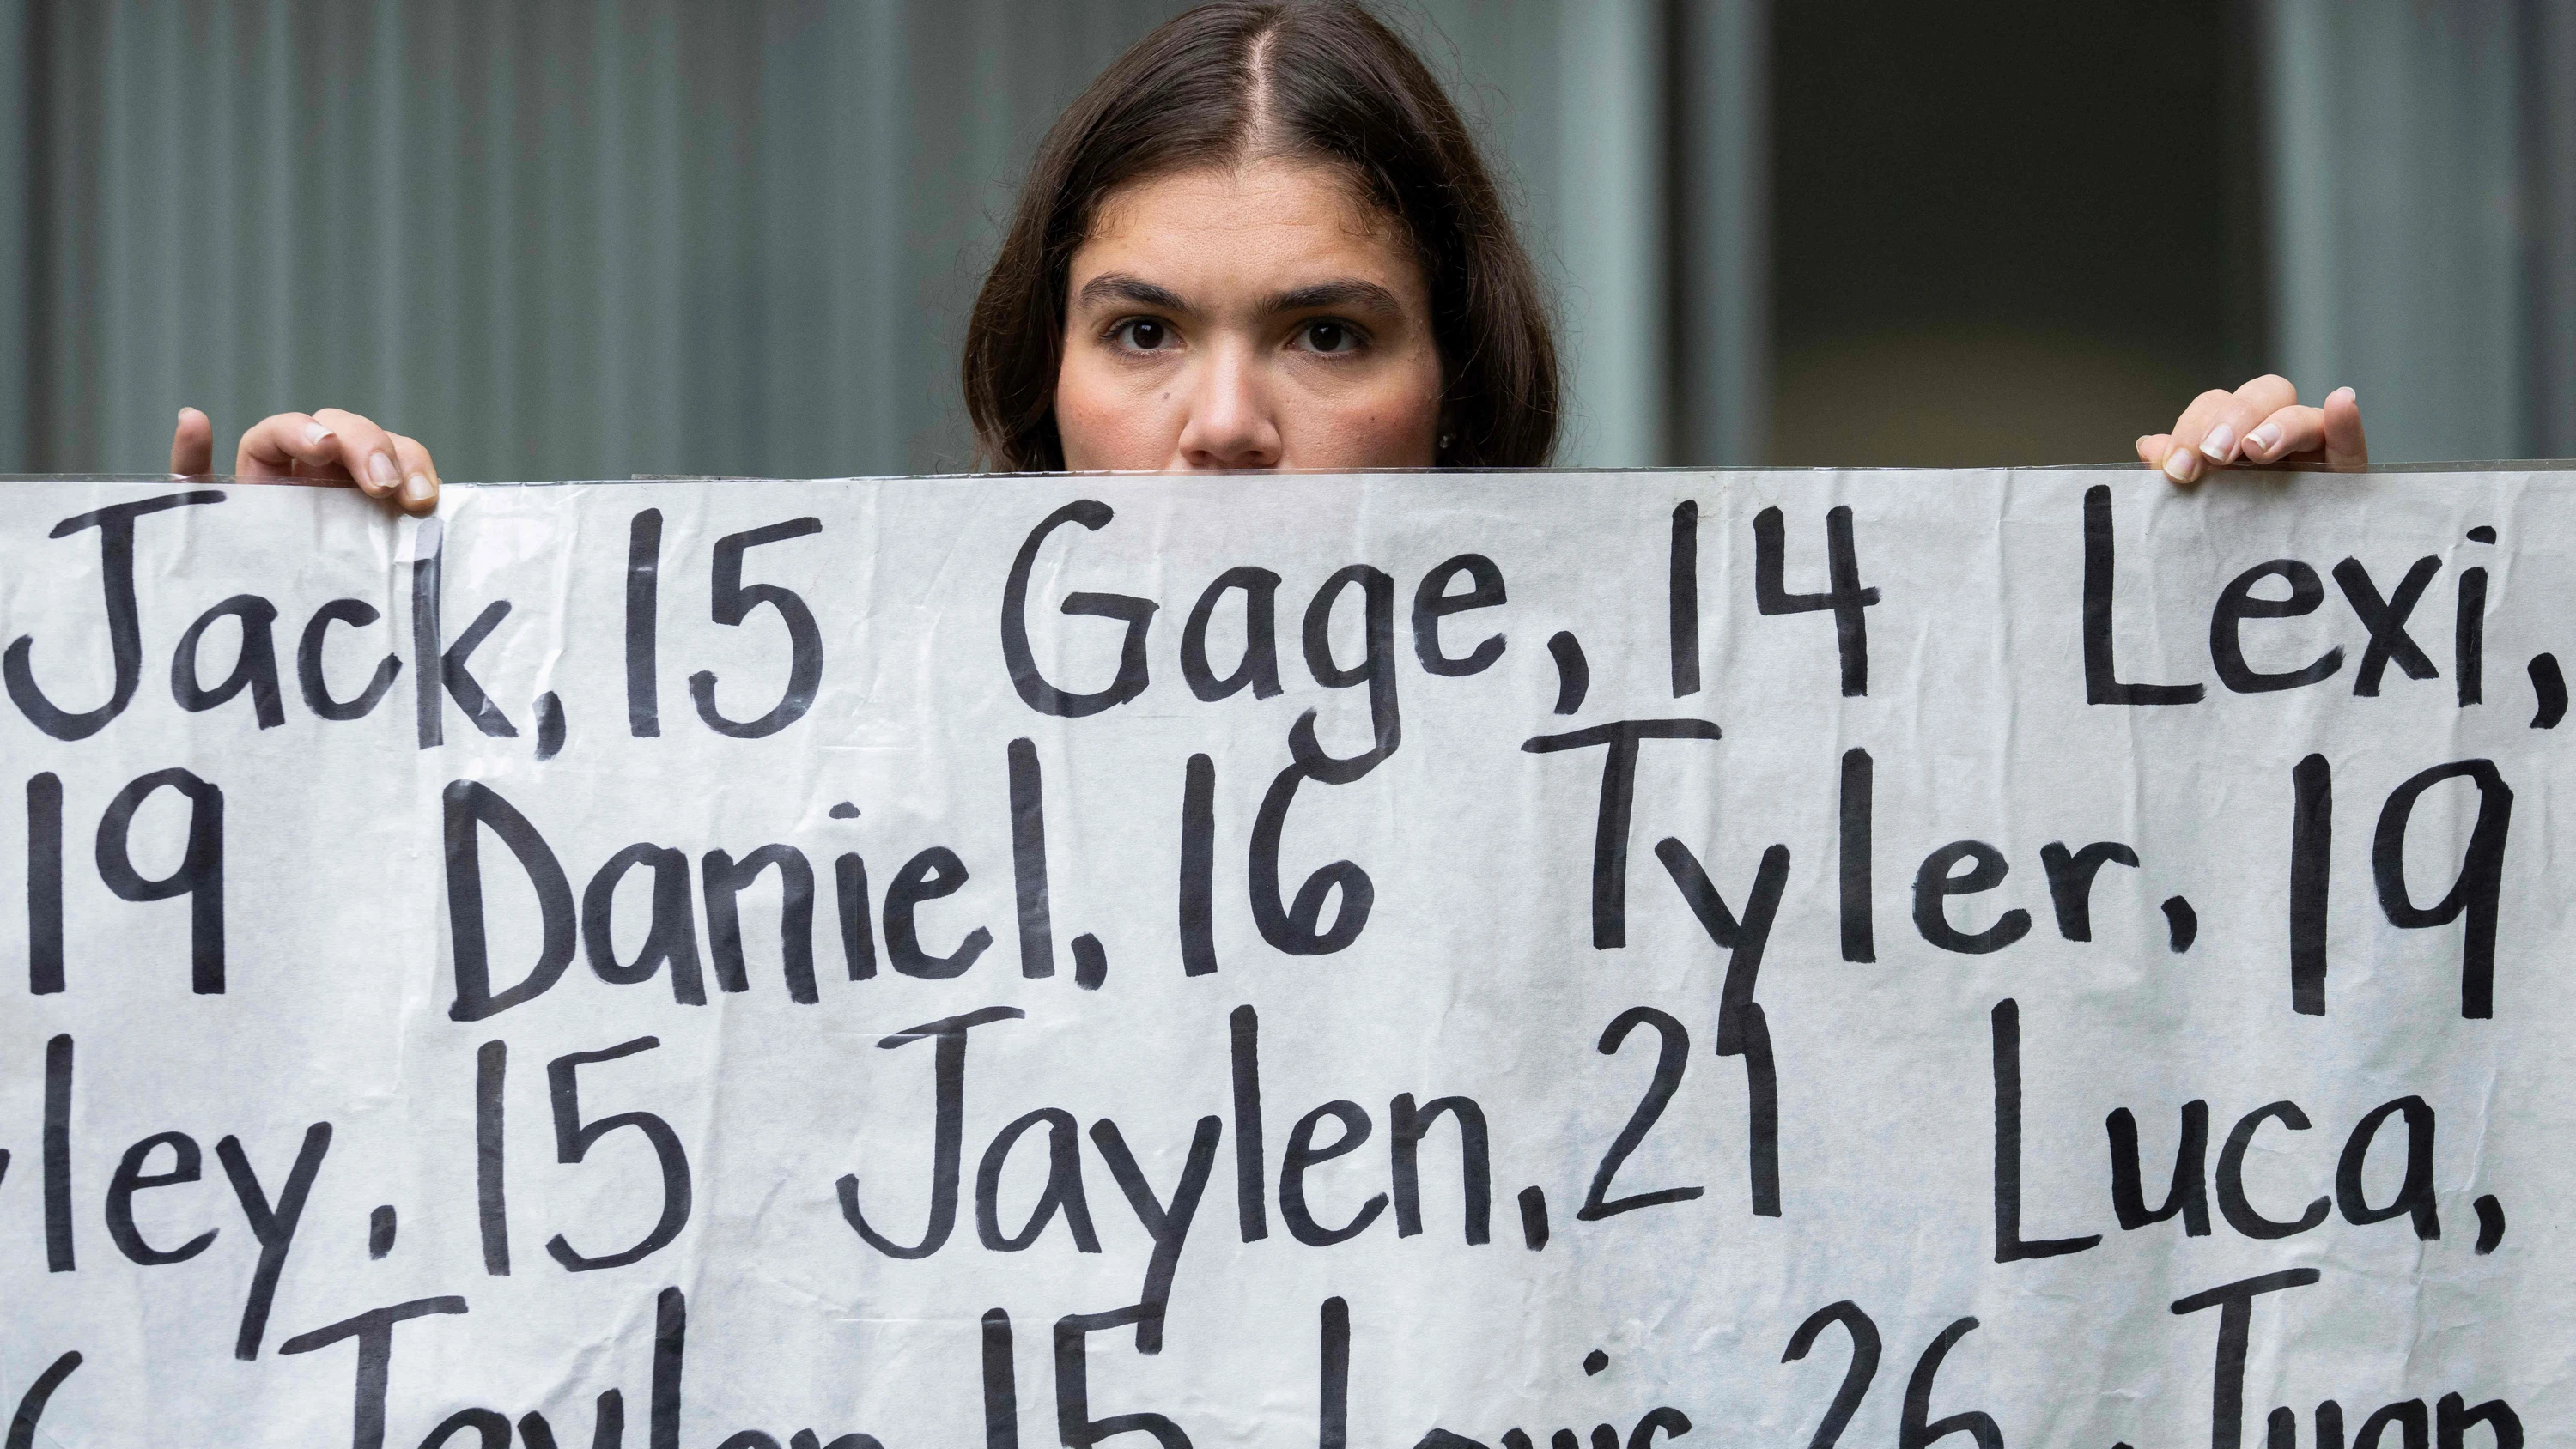 Jack, 15 Gage, 14 Lexi,
19 Daniel, 16 Tyler, 19
ley, 15 Jaylen, 21 Luca,
15 Louis 26, Juan